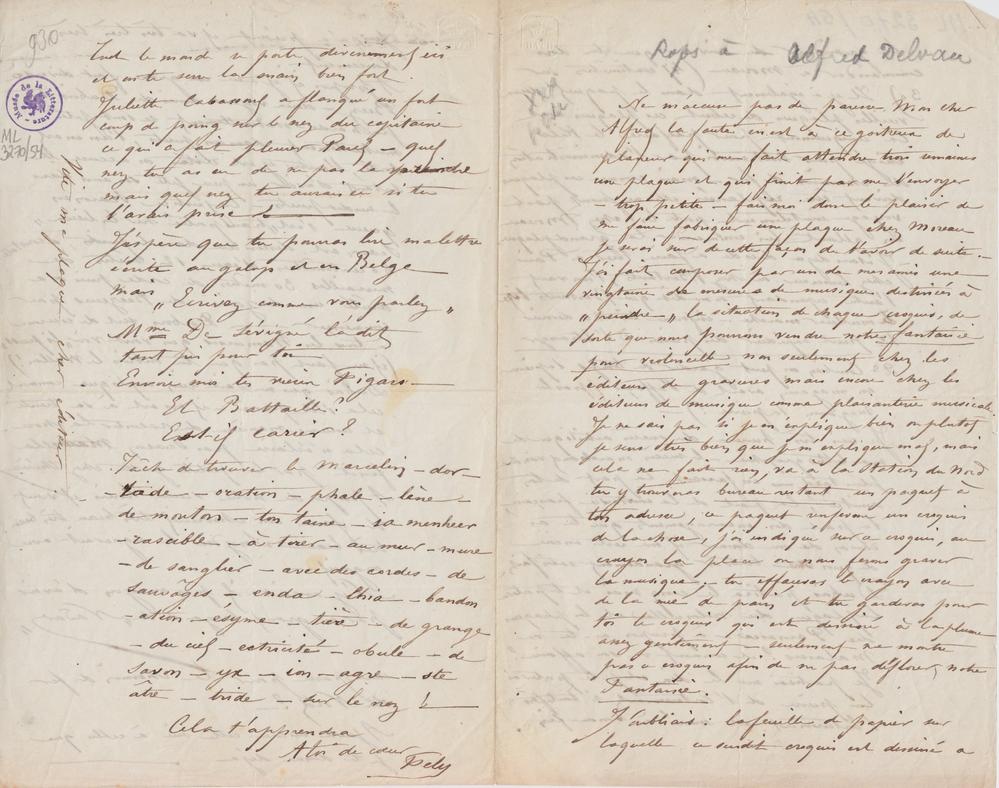 Rops à Alfred Delvau
Ne m'accuse pas de paresse Mon cher
Alfred la faute en est à ce goitreux de
planeur qui me fait attendre trois semaines
une plaque et qui finit par me l'envoyer
– trop petite – fais moi donc le plaisir de
me faire fabriquer une plaque chez Moreau
je serai sûr de cette façon de l'avoir de suite.
J'ai fait composer par un de mes amis une
vingtaine de mesures de musique destinées à
„peindre„ la situation de chaque croquis, de
sorte que nous pourrons vendre notre fantaisie
pour violoncelle non seulement chez les
éditeurs de gravures mais encore chez les
éditeurs de musique comme plaisanterie musicale.
Je ne sais pas si je m'explique bien ou plutôt
je sens très bien que je m'explique mal, mais
cela ne fait rien, va à la Station du Nord
tu y trouveras bureau restant un paquet à
ton adresse, ce paquet renferme un croquis
de la chose, j'ai indiqué sur ce croquis, au
crayon la place où nous ferons graver
la musique; tu effaceras le crayon avec
de la mie de pain et tu garderas pour
toi le croquis qui est dessiné à la plume
assez gentiment – seulement ne montre
pas ce croquis afin de ne pas déflorer notre
Fantaisie.
J'oubliais: la feuille de papier sur
laquelle ce susdit croquis est dessiné a
930
Musée de la Littérature
ML
3270/54
Tout le monde se porte divinement ici
et votre serre la main bien fort.
Juliette Cabassout a flanqué un fort
coup de poing sur le nez du capitaine
ce qui a fait pleurer Paul – quel
nez tu as eu de ne pas la
mais quel nez tu aurais eu si tu
l'avais prise!
J'éspère que tu pourras lire ma lettre
écrite au galop et en Belge
mais „Ecrivez comme vous parlez„
Mme De Sévigné l'a dit
tant pis pour toi
Envoie moi tes vieux Figaro.
Et Battaille?
Est-il carier?
Tâche de trouver le marcelin – dor
– oration – phale – lène –
de mouton – ton taine – ia menheer
– rascible – à tirer – au mur – mure
– de sanglier – avec des cordes – de
sauvages – enda – lhia – bandon
– ation – ésyme – tière – de grange
– du ciel – ectricité – obule – de
savon – yx – ion – agre – ste
atre – tride – sur le nez!
Cela t'apprendra
A toi de cœur
Fély
Vite ma plaque cher éditeur